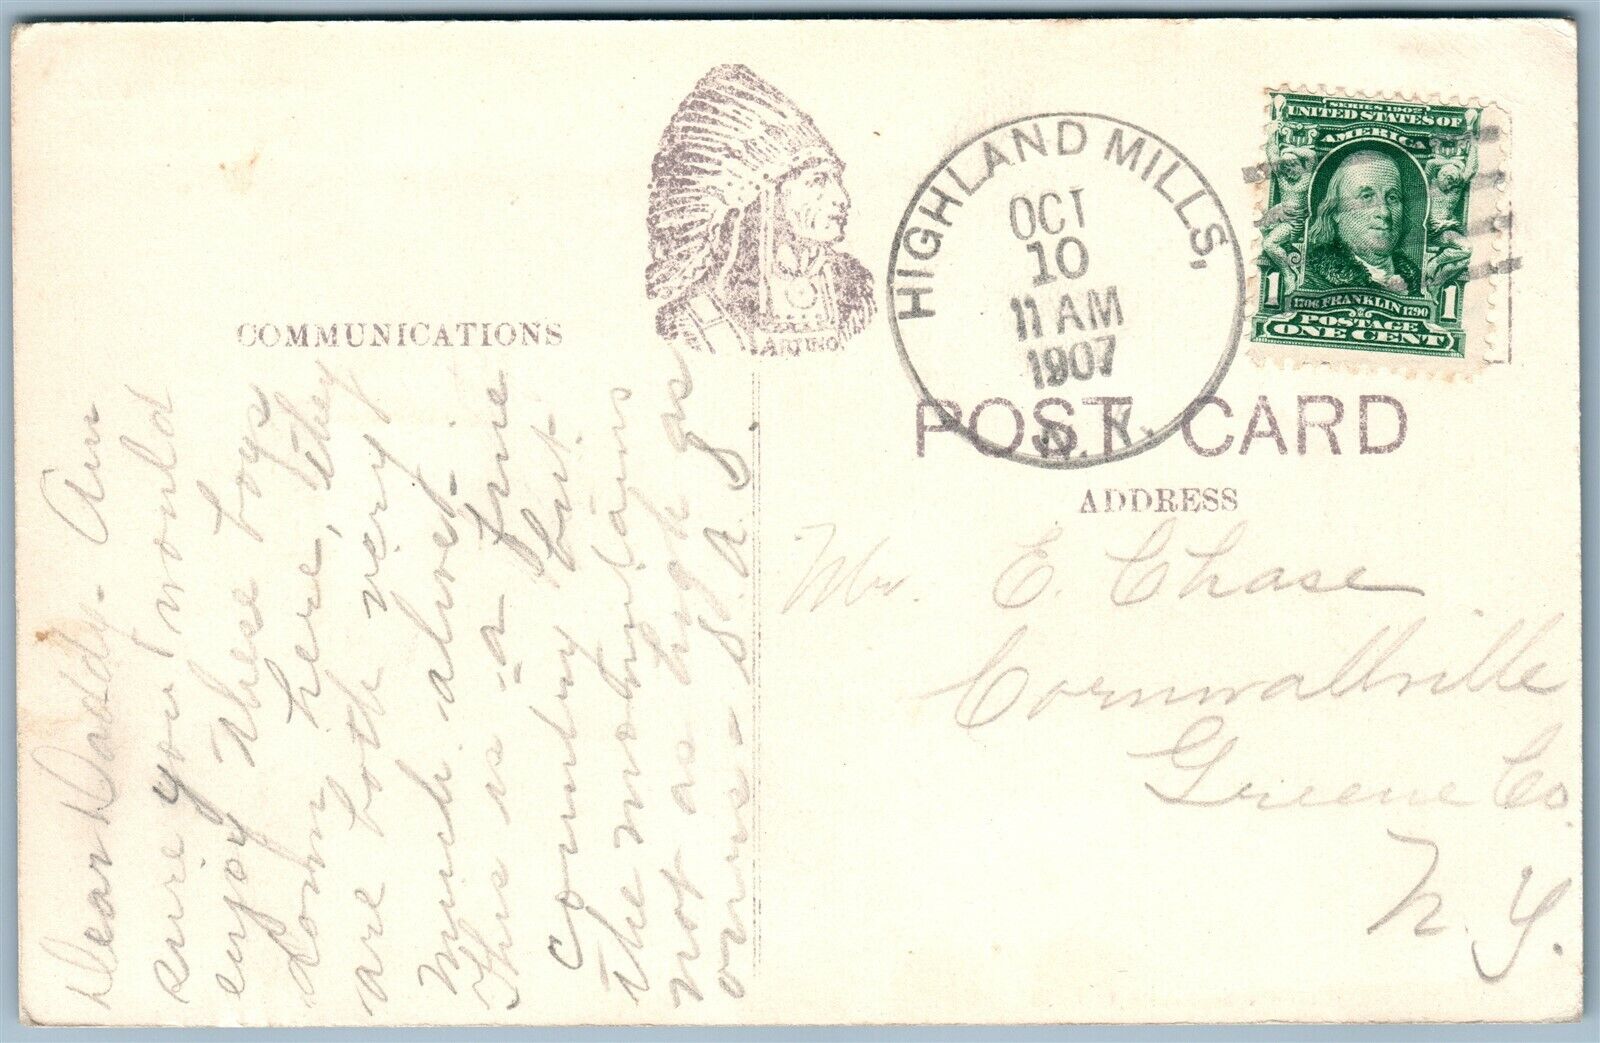 COMMUNICATIONS
Dear Daddy - Am
sure you would
enjoy these boys
down here, they
are both very
much alive -
This is a fine
country but
the mountains
not as high as
ours -
ARTINO
HIGHLAND MILLS,
OCT
10
11 AM
1907
N.Y.
SERIES 1902
UNITED STATES OF
AMERICA
1706 FRANKLIN 1790
1 POSTAGE 1
ONE CENT
POST CARD
ADDRESS
Mr. E. Chase
Cornwallville
Greene Co
N.Y.